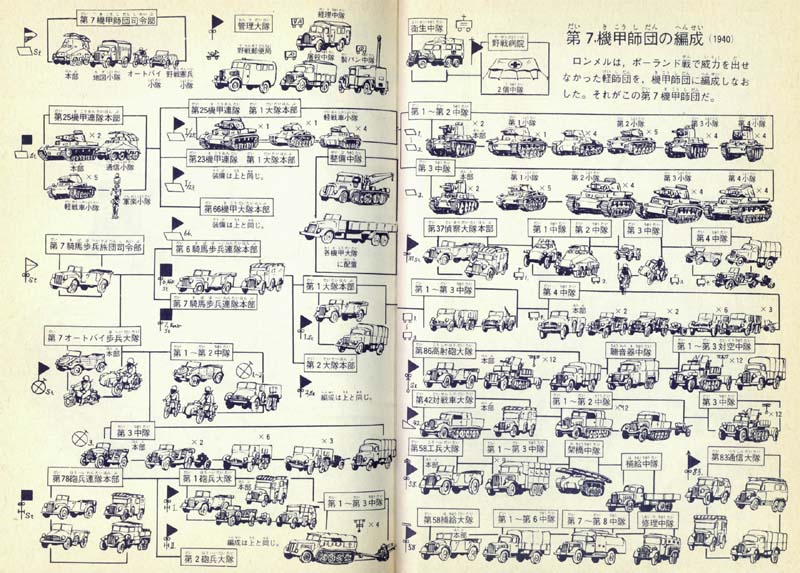 第7.機甲師団の編成 (1940)
ロンメルは、ポーランド戦で威力を出せ
なかった軽師団を、機甲師団に編成しなお
した。それがこの第7機甲師団だ。
第7機甲師団司令部
本部
地図小隊
オートバイ小隊
野戦憲兵小隊
管理大隊
経理中隊
野戦郵便局
屠殺中隊
製パン中隊
衛生中隊
野戦病院
第25機甲連隊本部
本部
×2
通信小隊
×5
軽戦車小隊
軍楽小隊
第1大隊本部
×1
軽戦車小隊
×1
×4
第23機甲連隊 第1大隊本部
装備は上と同じ。
第66機甲大隊本部
装備は上と同じ。
整備中隊
各機甲大隊
に配置
第1〜第2中隊
本部
×1
×1
第1小隊
×4
第2小隊
×5
第3小隊
×4
第4小隊
×4
第3中隊
本部
第1小隊
×5
第2小隊
×4
第3小隊
×4
第37偵察大隊本部
第1中隊
第2中隊
第3中隊
第4中隊
第7騎馬歩兵旅団司令部
第6騎馬歩兵連隊本部
第7騎馬歩兵連隊本部
第1大隊本部
第2大隊
編成は上と同じ。
第1〜第3中隊
第4中隊
本部
×2
×6
×3
第7オートバイ歩兵大隊
本部
第1〜第2中隊
第3中隊
本部
×2
×6
×3
第86高射砲大隊
本部
×12
聴音器中隊
第1〜第3対空中隊
×12
第42対戦車大隊
本部
第1〜第2中隊
×12
第3中隊
本部
×12
第58工兵大隊
本部
第1〜第3中隊
架橋中隊
補給中隊
第83通信大隊
第78砲兵連隊本部
第1砲兵大隊
本部
第1〜第3中隊
×4
編成は上と同じ。
第2砲兵大隊
第58補給大隊
本部
第1〜第6中隊
第7〜第8中隊
修理中隊